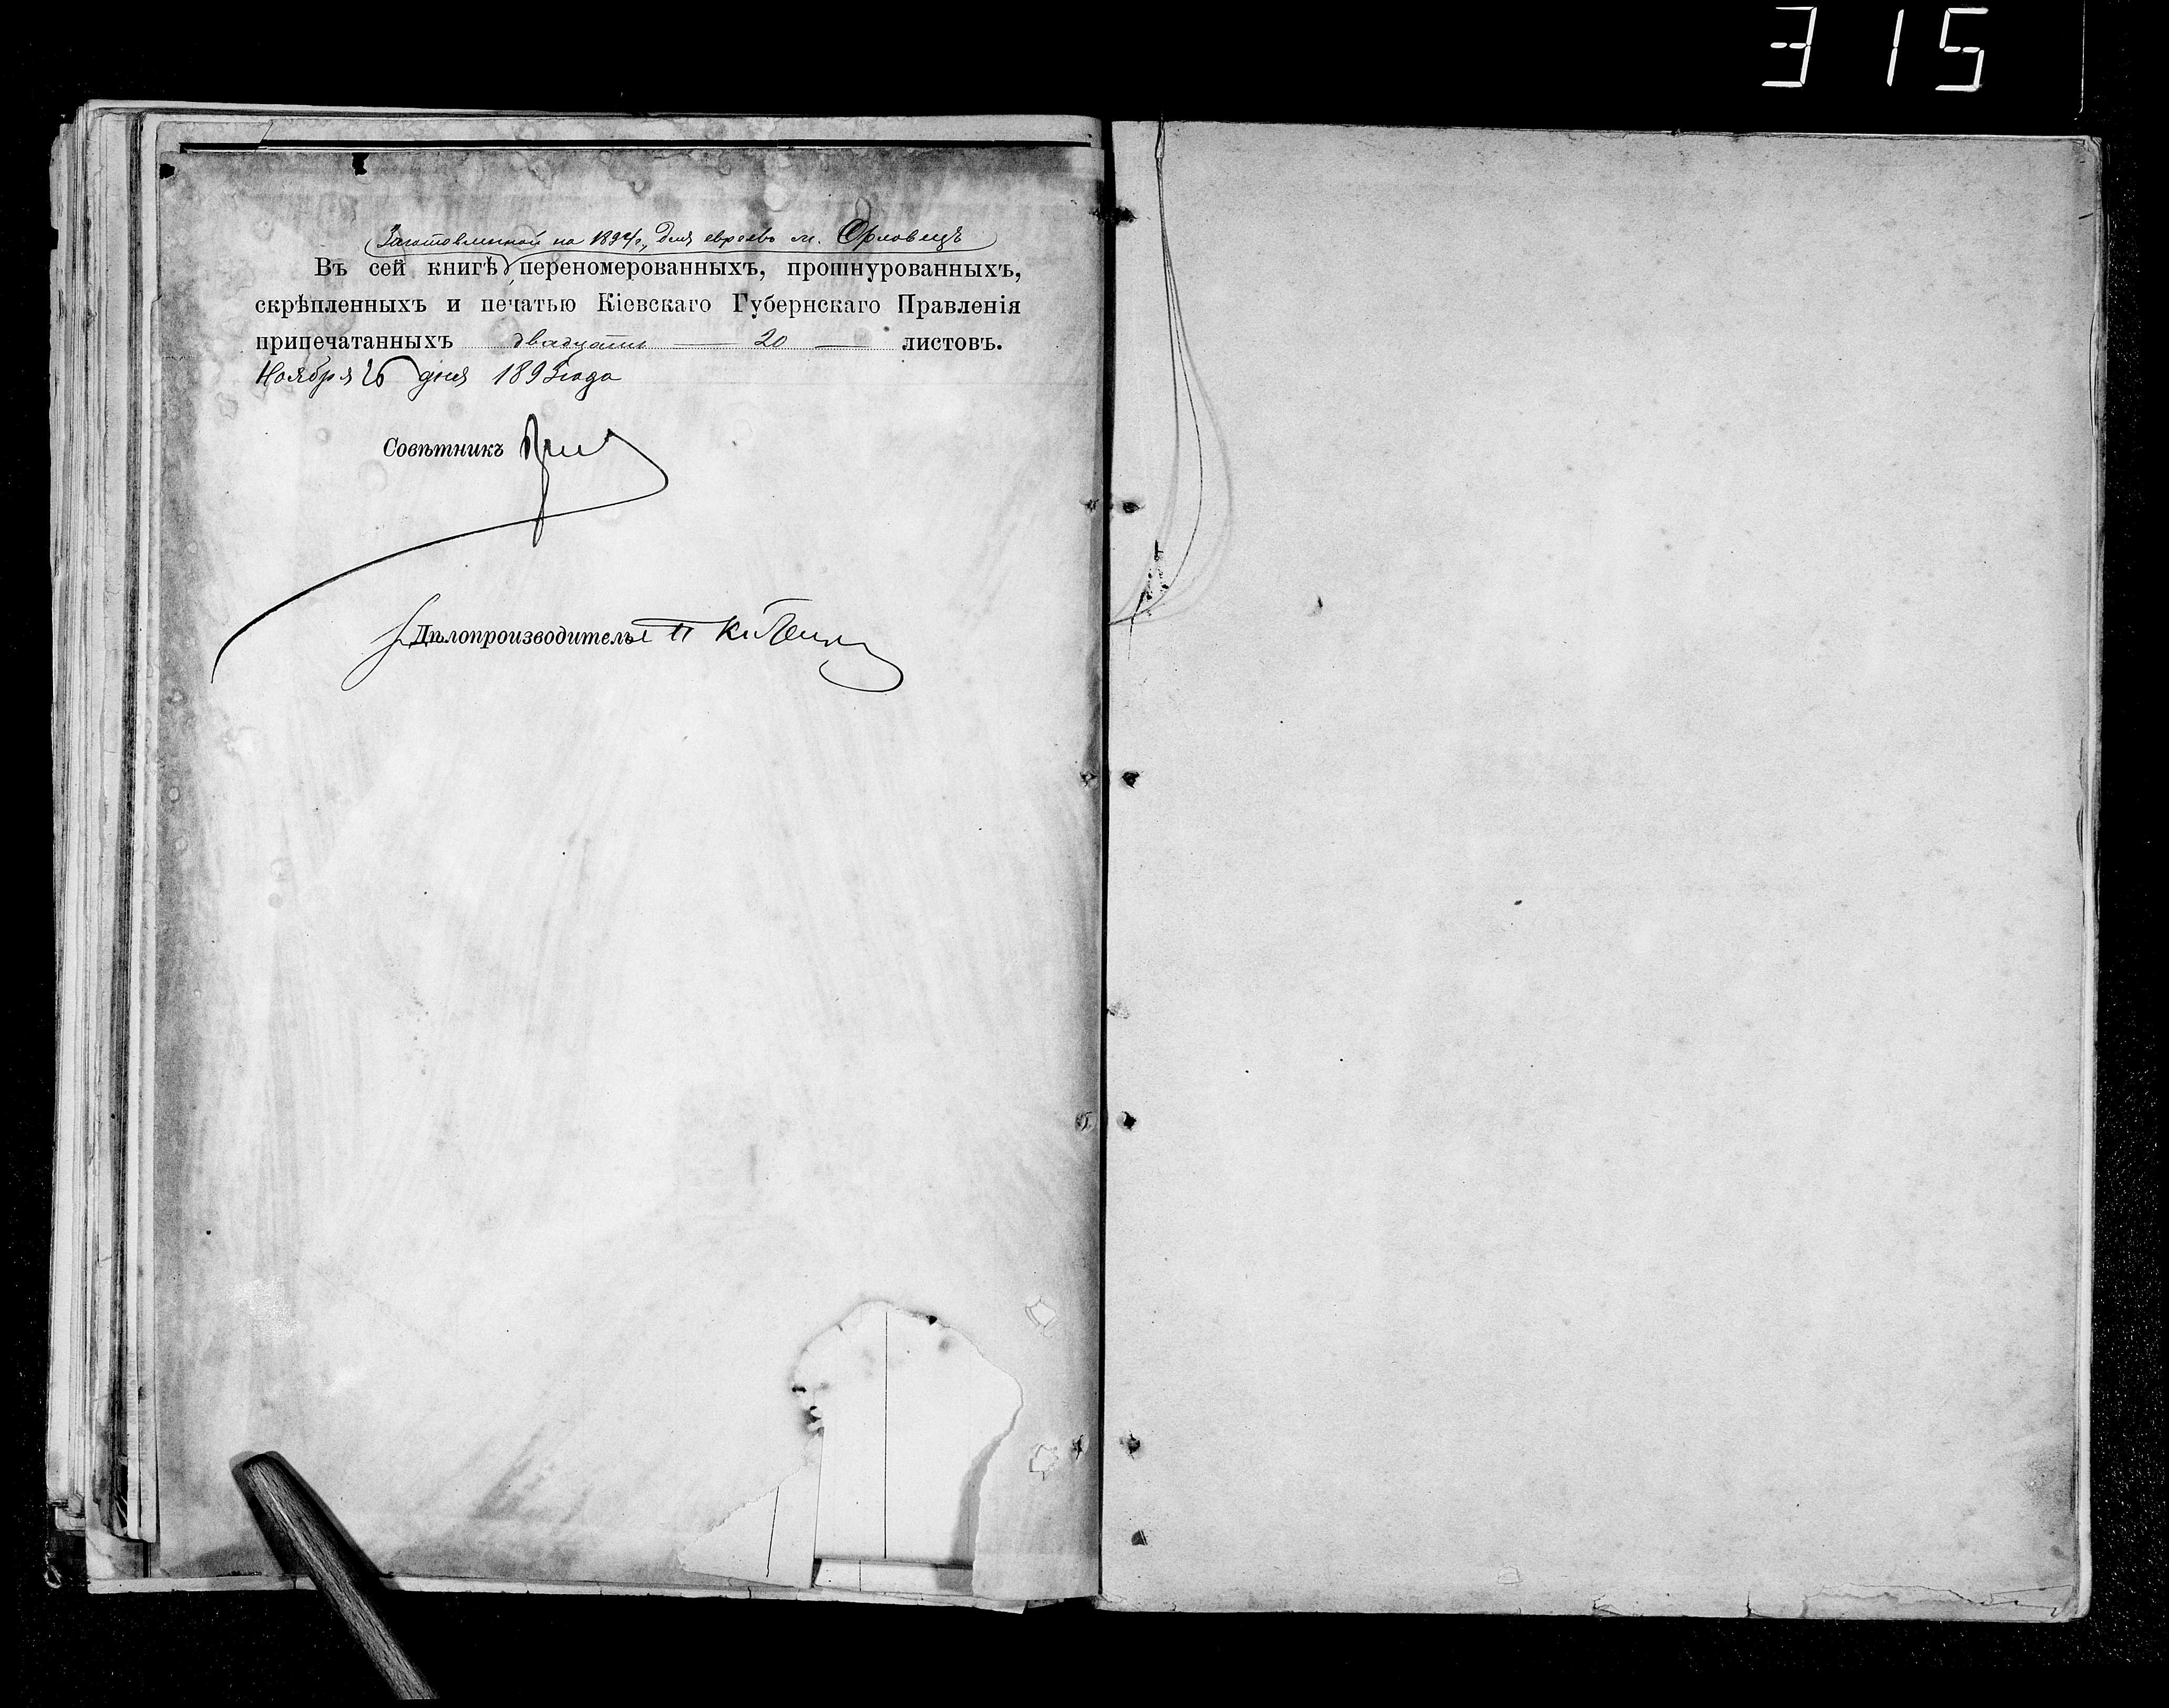 315
Заготовленной на 1894 г., для евреевъ м. Орловецъ
Въ сей книгѣ переномерованныхъ, прошнурованныхъ,
скрѣпленныхъ и печатью Кіевскаго Губернскаго Правленія
припечатанныхъ двадцать — 20 — листовъ.
Ноября 26 дня 1893 года
Совѣтникъ
Дѣлопроизводитель